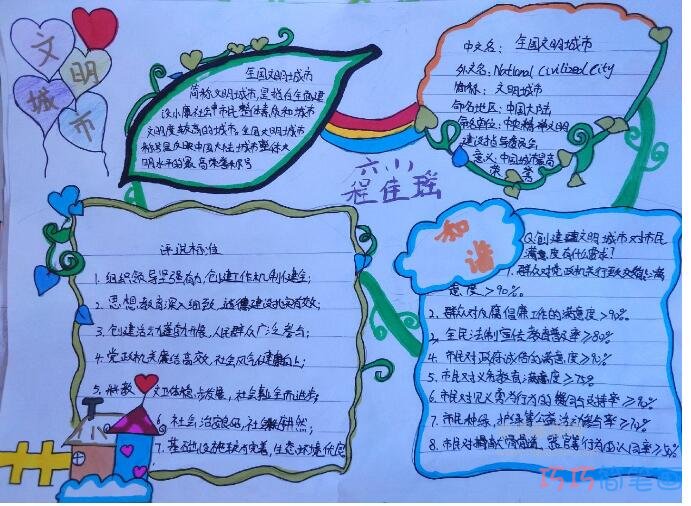 文
明
城
市
全国文明城市
简称文明城市,是指在全面建
设小康社会中市民整体素质和城市
文明度较高的城市。全国文明城市
称号是反映中国大陆城市整体文
明水平的最高荣誉称号
中文名:全国文明城市
外文名:National Civilized City
简称:文明城市
命名地区:中国大陆
命名单位:中央精神文明
建设指导委员会
意义:中国城市最高
荣誉
六小
程佳瑶
评选标准
1. 组织领导坚强有力,创建工作机制健全;
2. 思想教育深入细致,道德建设扎实有效;
3. 创建活动蓬勃开展,人民群众广泛参与;
4. 党政机关廉洁高效,社会风气健康向上;
5. 科教文卫体稳步发展,社会事业全面进步;
6. 社会治安良好,社会秩序井然;
7. 基础设施较为完善,生态环境优良
和谐
Q:创建文明城市对市民
满意度有什么要求?
1. 群众对党政机关行政效能满
意度≥90%。
2. 群众对反腐倡廉工作的满意度≥90%
3. 全民法制宣传教育普及率≥80%
4. 市民对政府诚信的满意度≥90%
5. 市民对义务教育满意度≥75%
6. 市民对见义勇为行为的赞同与支持率≥
7. 市民种绿、护绿等公益活动参与率≥
8. 市民对捐献骨髓、器官等行为认同率≥
巧巧简笔画